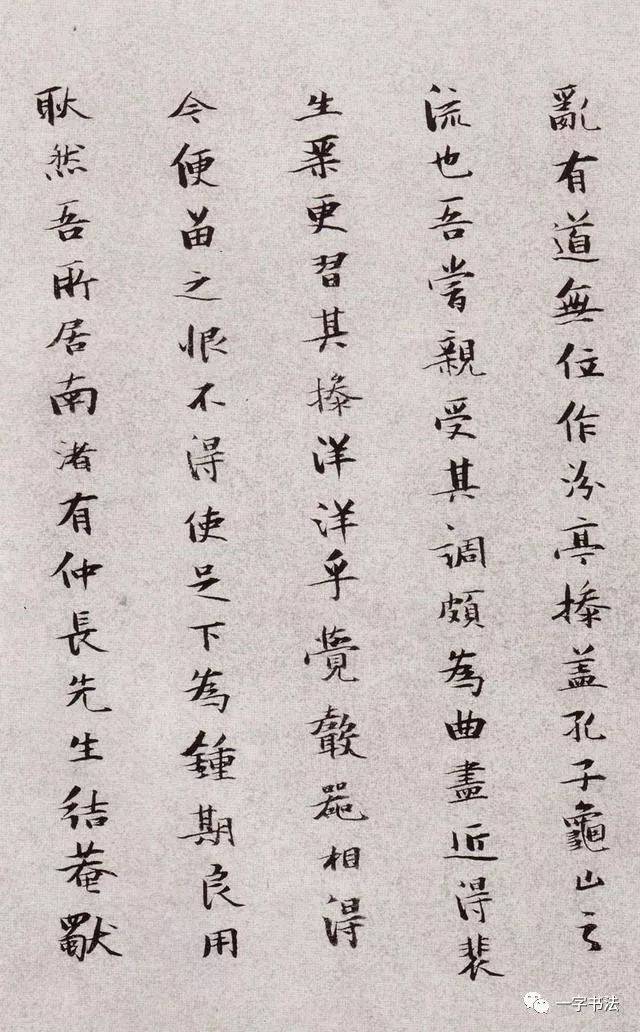 亂有道無位作汾亭操蓋孔子龜山之
流也吾嘗親受其調頗為曲盡近得裴
生琴更習其操洋洋乎覺聲器相得
今便留之恨不得使足下為鍾期良用
耿然吾所居南渚有仲長先生結菴獨
一字书法